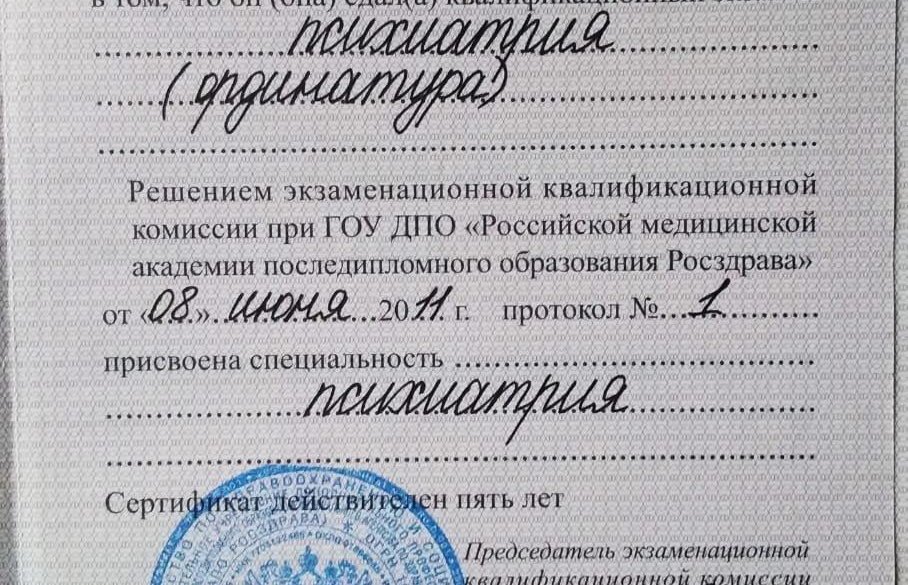 в том, что он (она) сдал(а) квалификационный
психиатрия
(ординатура)
Решением экзаменационной квалификационной
комиссии при ГОУ ДПО «Российской медицинской
академии последипломного образования Росздрава»
от «08» июня 2011 г. протокол № 1
присвоена специальность
психиатрия
Сертификат действителен пять лет
Председатель экзаменационной
квалификационной комиссии